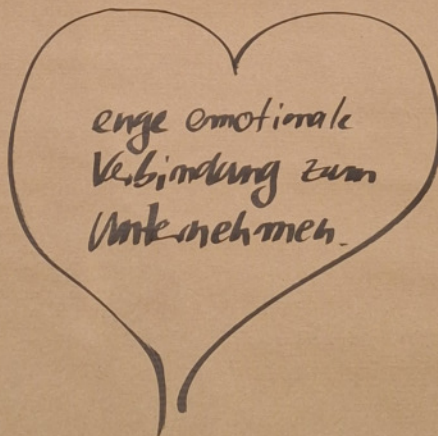 enge emotionale
Verbindung zum
Unternehmen.